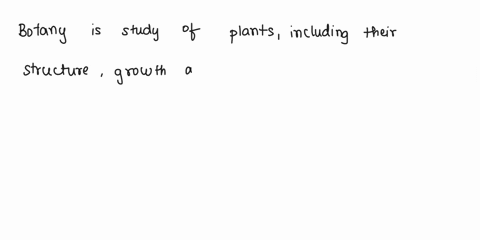 Botany is study of plants, including their
structure, growth a